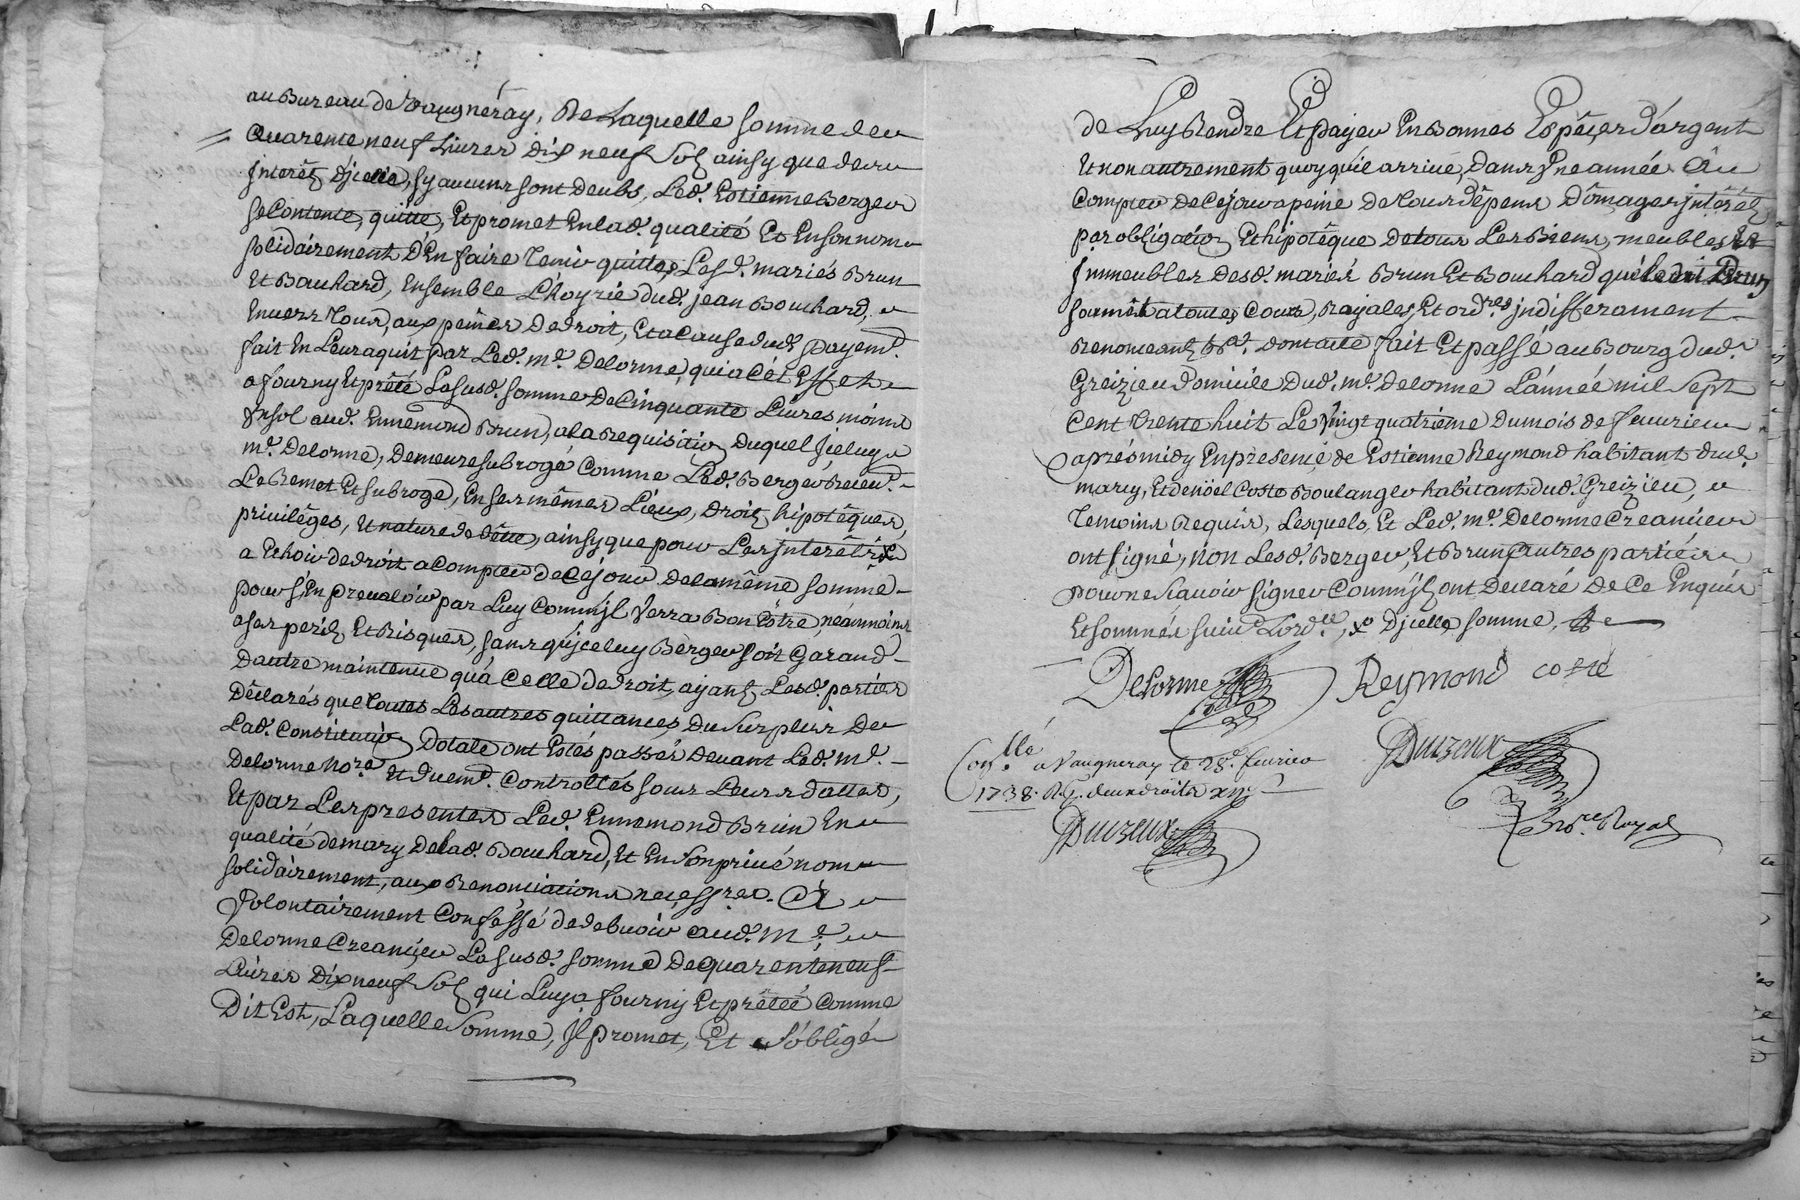 au Bureau de Vaugneray, De Laquelle somme de
Quarente neuf Livres dix neuf Sols ainsy que des
Interêts D'jcelle, sy aucuns sont deubs, Led. Estienne Berger
se Contente, quitte, Et promet En lad. qualité Et En son nom
solidairement D'En faire Tenir quittes, Lesd. mariés Brun
Et Bouchard, Ensemble L'hoyrie dud. jean Bouchard,
Envers Tous, aux peines De droit, Et a Cause dud. Payemt.
fait En Leur aquit par Led. me. Delorme, qui a Cet Effet
a fourny Et prêté La susd. somme De Cinquante Livres moins
Un sol aud. Ennemond Brun, a la Requisition duquel Jceluy
me. Delorme, Demeure subrogé Comme Led. Berger
Le Remet Et subroge, En ses mêmes Lieux, droits, hipotêques,
privilêges, Et nature de dêtte, ainsy que pour Les Interêts
a Echoir de droit a Compter de Cejour de la même somme
pour s'En prevaloir par Luy Comm'jl Verra Bon Estre, néanmoins
a ses perils Et Risques, sans qu'jceluy Berger soit Garand
D'autre maintenue qu'a Celle de droit, ayants Lesd. parties
Déclarés que toutes Les autres quittances Du Surplus De
Lad. Constitution Dotale ont Estés passés Devant Led. me.
Delorme Nore. Et duemt. Controllés sous Leurs dattes,
Et par Les presentes Led. Ennemond Brun En
qualité de mary De lad. Bouchard, Et En son privé nom
solidairement, aux Renonciations necessres. A
Volontairement Confessé de debvoir aud. Me.
Delorme Creancier La susd. somme De quarente neuf
Livres Dix neuf Sols qui Luy a fourny Et prêtée Comme
Dit Est, Laquelle Somme, Jl promet, Et s'obligé
de Luy Rendre Et payer En Bonnes Espêces d'argent
Et non autrement quoy qu'il arrive, Dans Une année Au
Compter De Cejour a peine De tous dêpens Dômages interêts
par obligation Et hipotêque De tous Les Biens, meubles Et
Immeubles Desd. mariés Brun Et Bouchard que led. Brun
soumêt a toutes Cours, Royales, Et ordres. jndifferament
Renonceant &ct. Dont acte fait Et passé au Bourg dud.
Greizieu domicile Dud. me. Delorme L'année mil Sept
Cent trente huit Le Vingt quatrième Du mois de fevrier
aprés midy En presence de Estienne Reymond habitant dud.
marcy, Et de nöel Coste Boulanger habitant dud. Greizieu,
Temoins Requis, Lesquels Et Led. me. Delorme Creancier
ont signé, Non Lesd. Berger, Et Brun autres parties
pour ne sçavoir signer Comm'jls ont Declaré de Ce Enquis
Et sommés suivt. L'ordce. x D'jcelle somme,
Delorme Reymond coste
Conllé. a Vaugneray le 28e. fevrier
1738. R. deux droits xij s
Duizeux
Duizeux
Nore. Royal